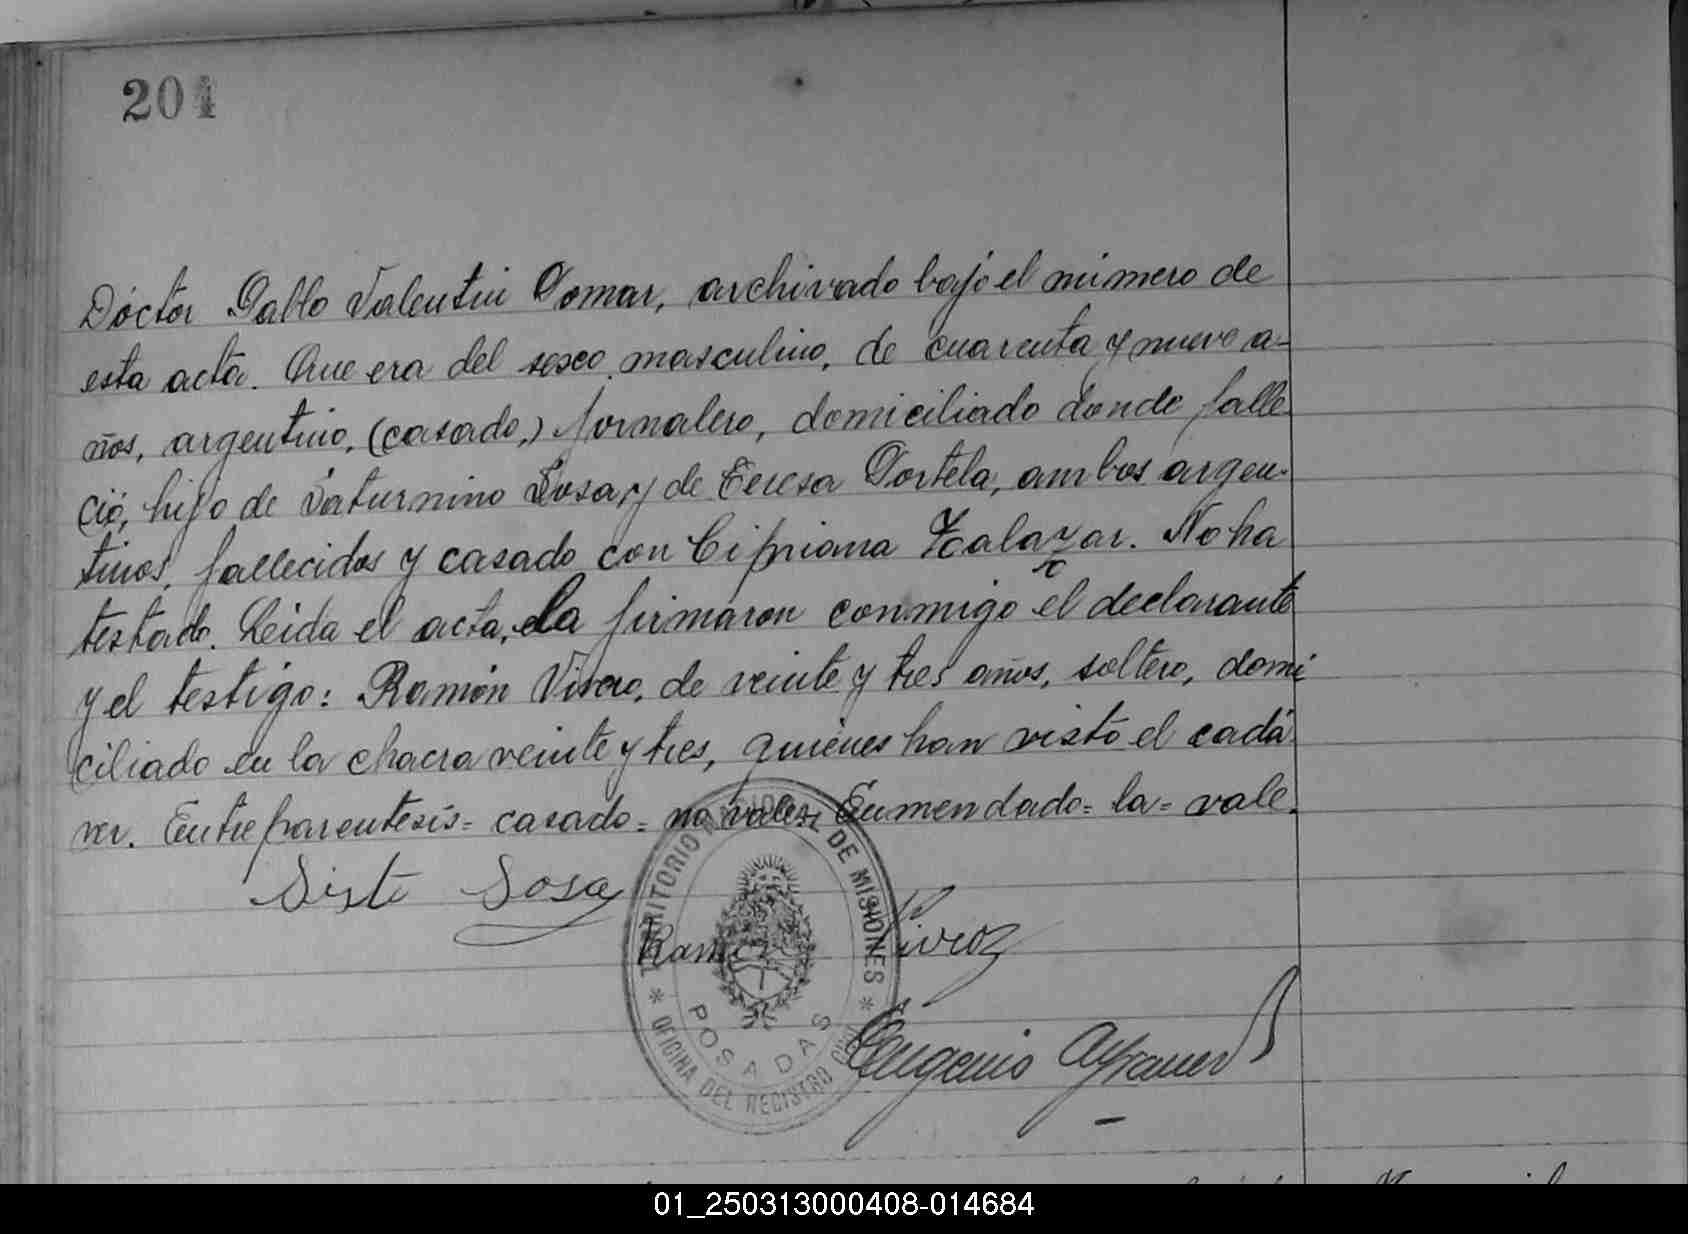 204
Dóctor Pablo Valentin Pomar, archivado bajo el número de
esta acta. Que era del sexo masculino, de cuarenta y nueve a-
ños, argentino, (casado,) jornalero, domiciliado donde falle-
ció, hijo de Saturnino Sosa, y de Teresa Portela, ambos argen-
tinos, fallecidos y casado con Cipriana Zalazar. No ha
testado. Leida el acta, la firmaron conmigo el declarante
y el testigo: Ramón Vivero, de veinte y tres años, soltero, domi
ciliado en la chacra veinte y tres, quiénes han visto el cadá
ver. Entre parentesis= casado= no vale. Enmendado= la= vale.
Sisto Sosa
Ramon
Eugenio
TERRITORIO NACIONAL DE MISIONES
POSADAS
OFICINA DEL REGISTRO CIVIL
01_250313000408-014684